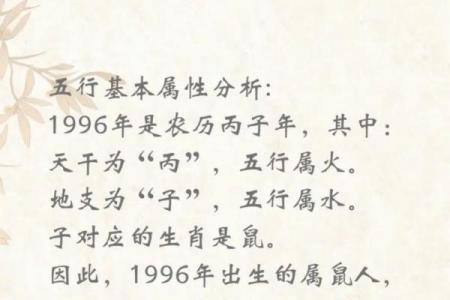 五行基本属性分析:
1996年是农历丙子年，其中:
天干为“丙”，五行属火。
地支为“子”，五行属水。
子对应的生肖是鼠。
因此，1996年出生的属鼠人，